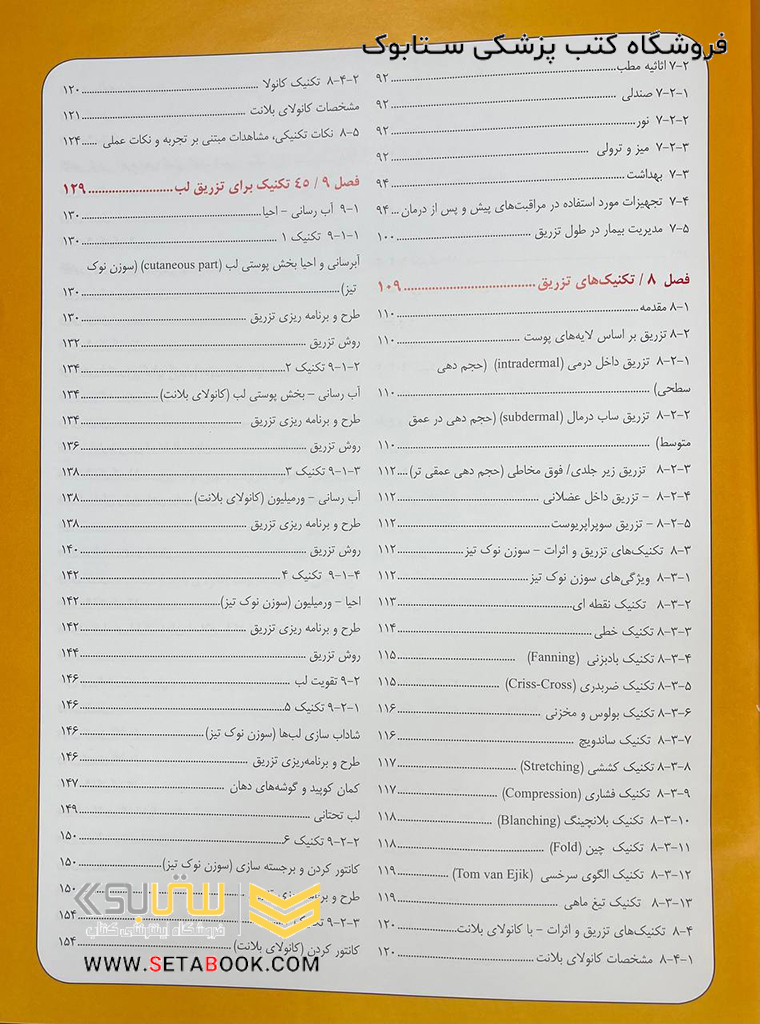 فروشگاه کتب پزشکی ستابوک
۷-۲ اثاثیه مطب ۹۲
۷-۲-۱ صندلی ۹۲
۷-۲-۲ نور ۹۲
۷-۲-۳ میز و ترولی ۹۲
۷-۳ بهداشت ۹۴
۷-۴ تجهیزات مورد استفاده در مراقبت‌های پیش و پس از درمان ۹۴
۷-۵ مدیریت بیمار در طول تزریق ۱۰۰
فصل ۸ / تکنیک‌های تزریق ۱۰۹
۸-۱ مقدمه ۱۱۰
۸-۲ تزریق بر اساس لایه‌های پوست ۱۱۰
۸-۲-۱ تزریق داخل درمی (intradermal) (حجم دهی
سطحی) ۱۱۰
۸-۲-۲ تزریق ساب درمال (subdermal) (حجم دهی در عمق
متوسط) ۱۱۰
۸-۲-۳ تزریق زیر جلدی/ فوق مخاطی (حجم دهی عمقی تر) ۱۱۲
۸-۲-۴ – تزریق داخل عضلانی ۱۱۲
۸-۲-۵ – تزریق سوپراپریوست ۱۱۲
۸-۳ تکنیک‌های تزریق و اثرات – سوزن نوک تیز ۱۱۲
۸-۳-۱ ویژگی‌های سوزن نوک تیز ۱۱۲
۸-۳-۲ تکنیک نقطه ای ۱۱۳
۸-۳-۳ تکنیک خطی ۱۱۴
۸-۳-۴ تکنیک بادبزنی (Fanning) ۱۱۵
۸-۳-۵ تکنیک ضربدری (Criss-Cross) ۱۱۵
۸-۳-۶ تکنیک بولوس و مخزنی ۱۱۶
۸-۳-۷ تکنیک ساندویچ ۱۱۶
۸-۳-۸ تکنیک کششی (Stretching) ۱۱۷
۸-۳-۹ تکنیک فشاری (Compression) ۱۱۷
۸-۳-۱۰ تکنیک بلانچینگ (Blanching) ۱۱۸
۸-۳-۱۱ تکنیک چین (Fold) ۱۱۸
۸-۳-۱۲ تکنیک الگوی سرخسی (Tom van Ejik) ۱۱۹
۸-۳-۱۳ تکنیک تیغ ماهی ۱۱۹
۸-۴ تکنیک‌های تزریق و اثرات – با کانولای بلانت ۱۲۰
۸-۴-۱ مشخصات کانولای بلانت ۱۲۰
۸-۴-۲ تکنیک کانولا ۱۲۰
مشخصات کانولای بلانت ۱۲۱
۸-۵ نکات تکنیکی، مشاهدات مبتنی بر تجربه و نکات عملی ۱۲۴
فصل ۹ / ٤٥ تکنیک برای تزریق لب ۱۲۹
۹-۱ آب رسانی – احیا ۱۳۰
۹-۱-۱ تکنیک ۱ ۱۳۰
آبرسانی و احیا بخش پوستی لب (cutaneous part) (سوزن نوک
تیز) ۱۳۰
طرح و برنامه ریزی تزریق ۱۳۰
روش تزریق ۱۳۲
۹-۱-۲ تکنیک ۲ ۱۳۴
آب رسانی – بخش پوستی لب (کانولای بلانت) ۱۳۴
طرح و برنامه ریزی تزریق ۱۳۴
روش تزریق ۱۳۶
۹-۱-۳ تکنیک ۳ ۱۳۸
آب رسانی – ورمیلیون (کانولای بلانت) ۱۳۸
طرح و برنامه ریزی تزریق ۱۳۸
روش تزریق ۱۴۰
۹-۱-۴ تکنیک ۴ ۱۴۲
احیا – ورمیلیون (سوزن نوک تیز) ۱۴۲
طرح و برنامه ریزی تزریق ۱۴۲
روش تزریق ۱۴۴
۹-۲ تقویت لب ۱۴۶
۹-۲-۱ تکنیک ۵ ۱۴۶
شاداب سازی لب‌ها (سوزن نوک تیز) ۱۴۶
طرح و برنامه‌ریزی تزریق ۱۴۶
کمان کوپید و گوشه‌های دهان ۱۴۷
لب تحتانی ۱۴۹
۹-۲-۲ تکنیک ۶ ۱۵۰
کانتور کردن و برجسته سازی (سوزن نوک تیز) ۱۵۰
طرح و برنامه ریزی ۱۵۰
۹-۲-۳ ۱۵۴
کانتور کردن (کانولای بلانت) ۱۵۴
ستابوک
فروشگاه اینترنتی کتاب
WWW.SETABOOK.COM